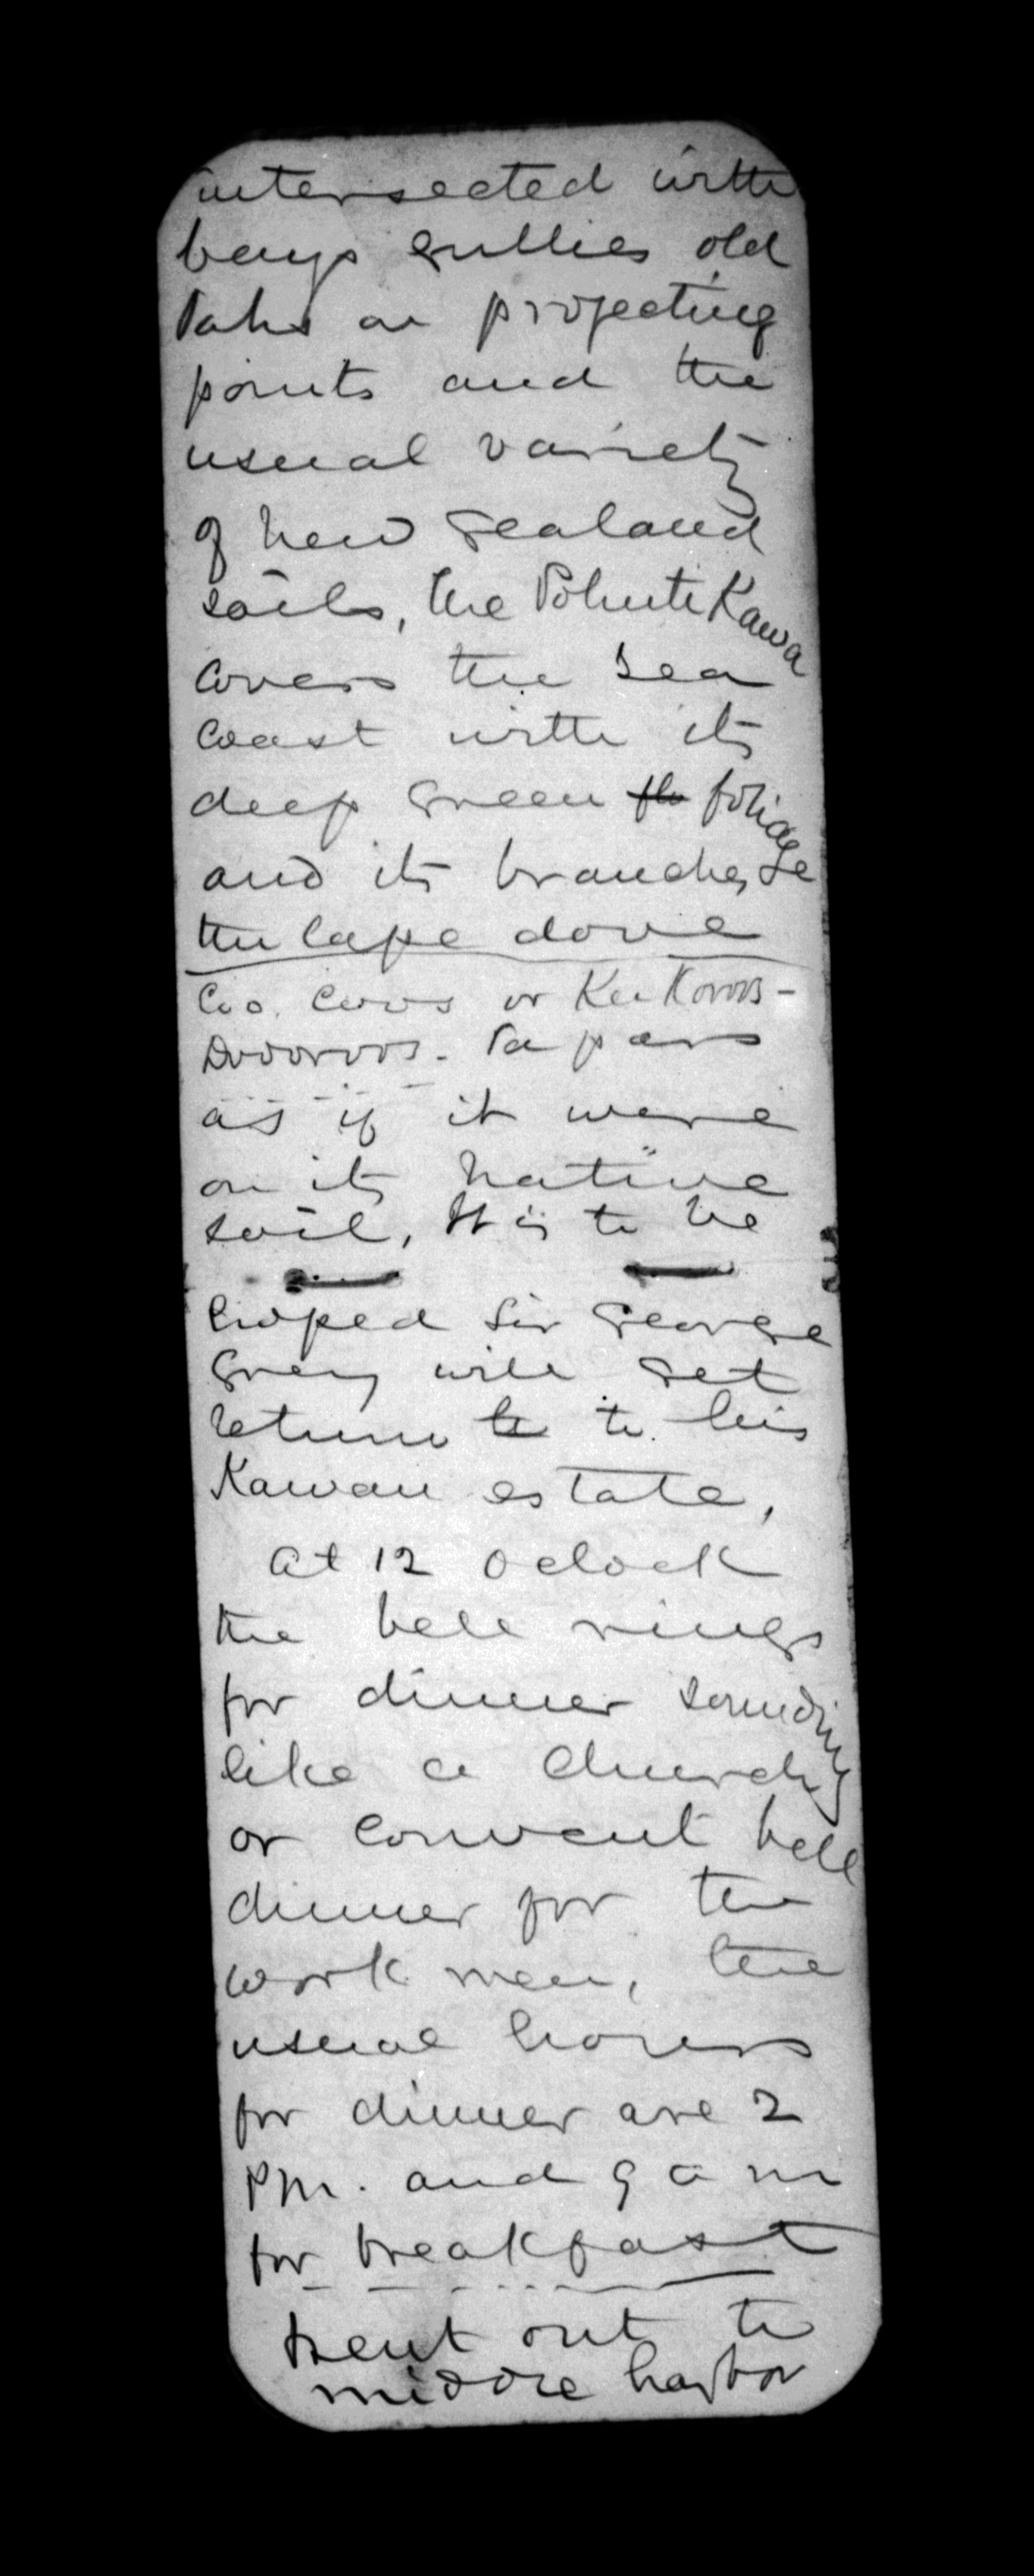 intersected with
bays gullies old
Pahs on projecting
points and the
usual variety
of New Zealand
soils, the PohutiKawa
covers the sea
coast with its
deep green foliage
and its branches
the Cape dove
Coo. Coos or
as if it were
on its native
soil, It is to be
hoped Sir George
Grey will get
return to to his
Kawau estate,
at 12 Oclock
the bell rings
for dinner sounding
like a church
or convent bell
dinner for the
work men, the
usual hours
for dinner are 2
PM. and 9 a m
for breakfast
went out to
middle harbor